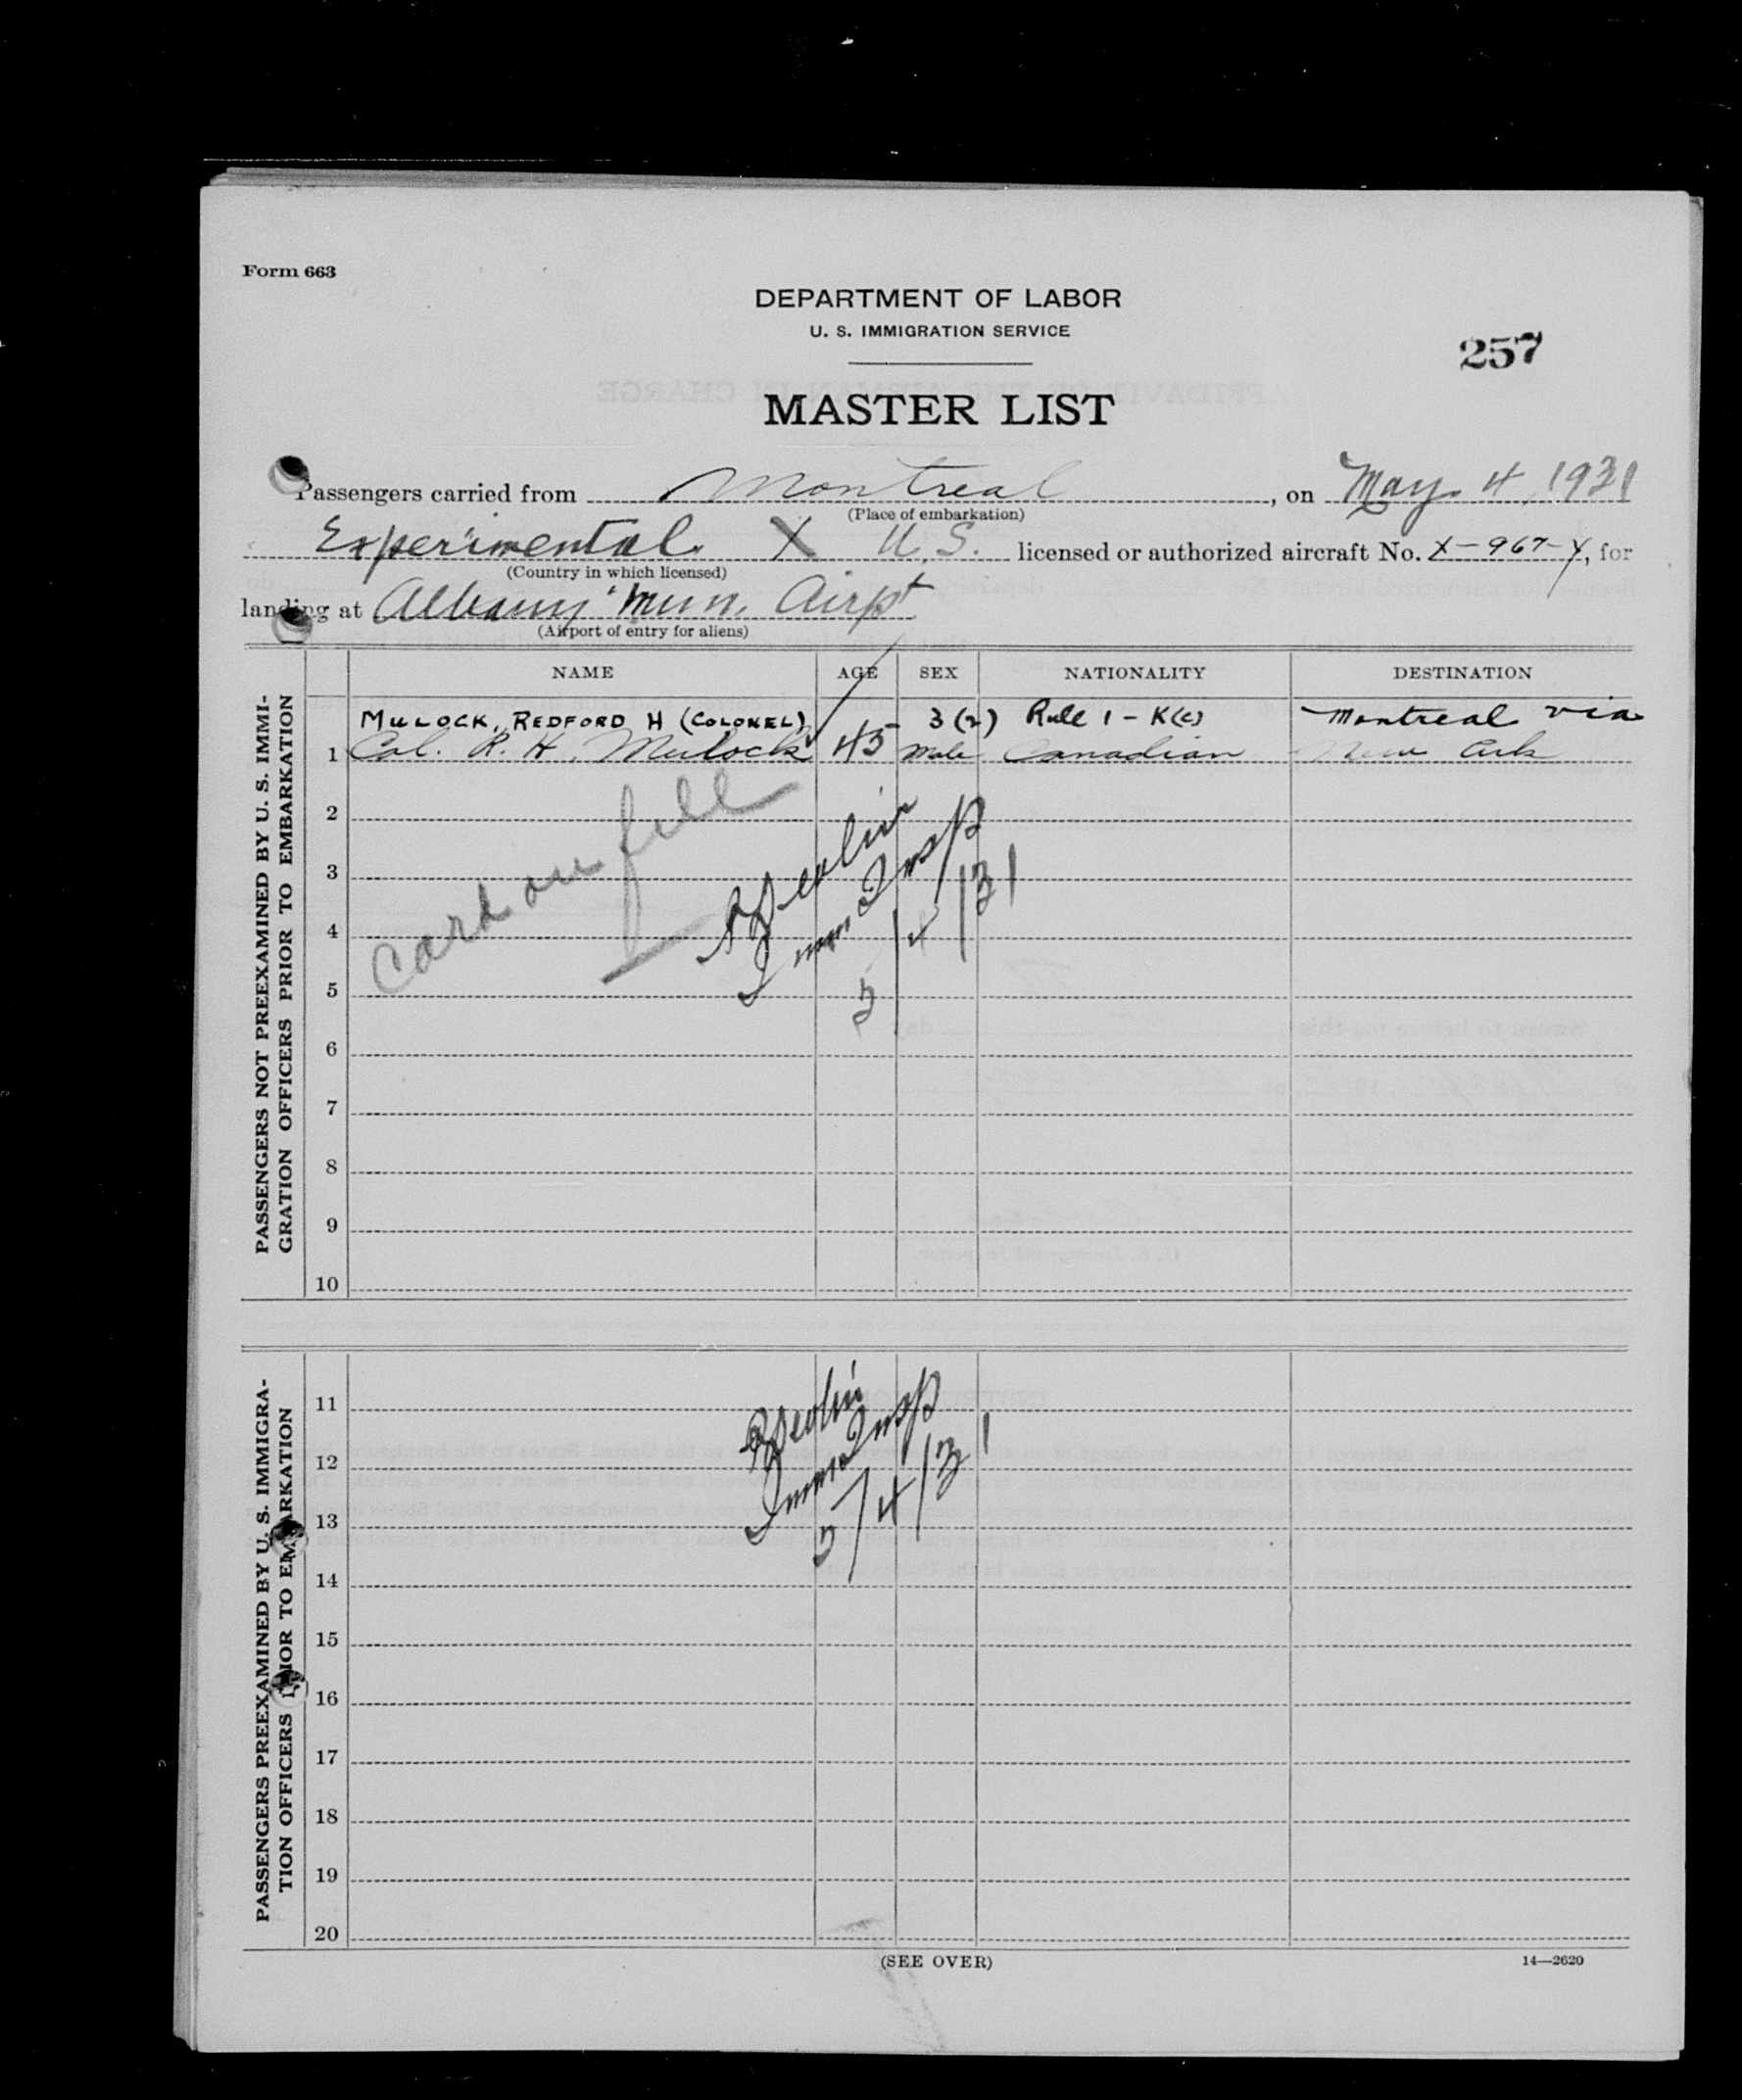 Form 663
DEPARTMENT OF LABOR
U. S. IMMIGRATION SERVICE
257
MASTER LIST
Passengers carried from Montreal, on May 4, 1931
(Place of embarkation)
Experimental X U.S. licensed or authorized aircraft No. X-967-Y, for
(Country in which licensed)
landing at Albany Mun. Airpt
(Airport of entry for aliens)
NAME AGE SEX NATIONALITY DESTINATION
PASSENGERS NOT PREEXAMINED BY U. S. IMMI-
GRATION OFFICERS PRIOR TO EMBARKATION
MULOCK, REDFORD H (COLONEL) 3(2) Rule 1 - K(c) Montreal via
1 Col. R. H. Mulock 45 Male Canadian New Ark
Card on file
2
3
4
Imm Insp
5/4/31
5
6
7
8
9
10
PASSENGERS PREEXAMINED BY U. S. IMMIGRA-
TION OFFICERS PRIOR TO EMBARKATION
11
12
Imm Insp
5/4/31
13
14
15
16
17
18
19
20
(SEE OVER)
14—2620